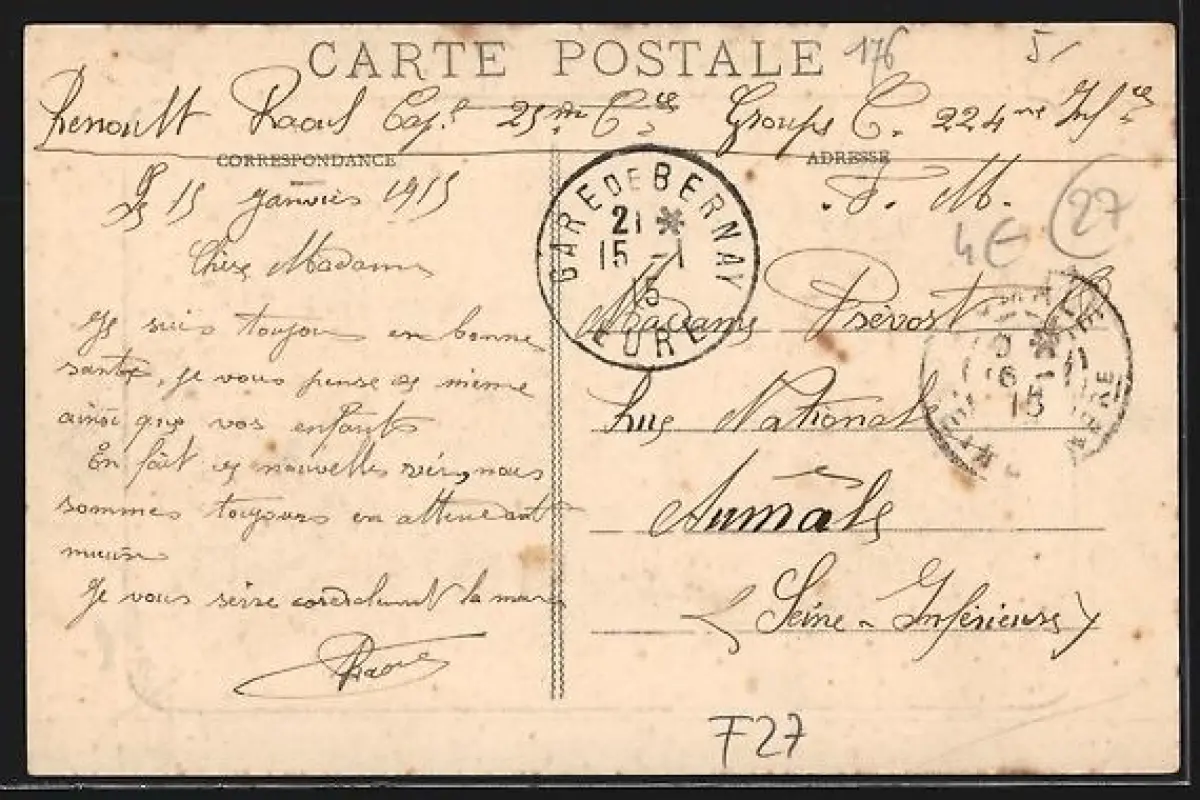 CARTE POSTALE
176
5/
Renoult Raoul Cap.l 25me Cie Groupe C. 224me Infie
CORRESPONDANCE
ADRESSE
Le 15 Janvier 1915
F. M.
4€
27
Chère Madame
GARE DE BERNAY
21 *
15 - 1
15
EURE
Madame Prévost
Je suis toujours en bonne
santé, je vous pense de même
ainsi que vos enfants
Rue Nationale
15
En fait de nouvelles rien, nous
sommes toujours en attendant
mieux
Aumâle
Je vous serre cordialement la main
(Seine-Inférieure)
Raoul
F27